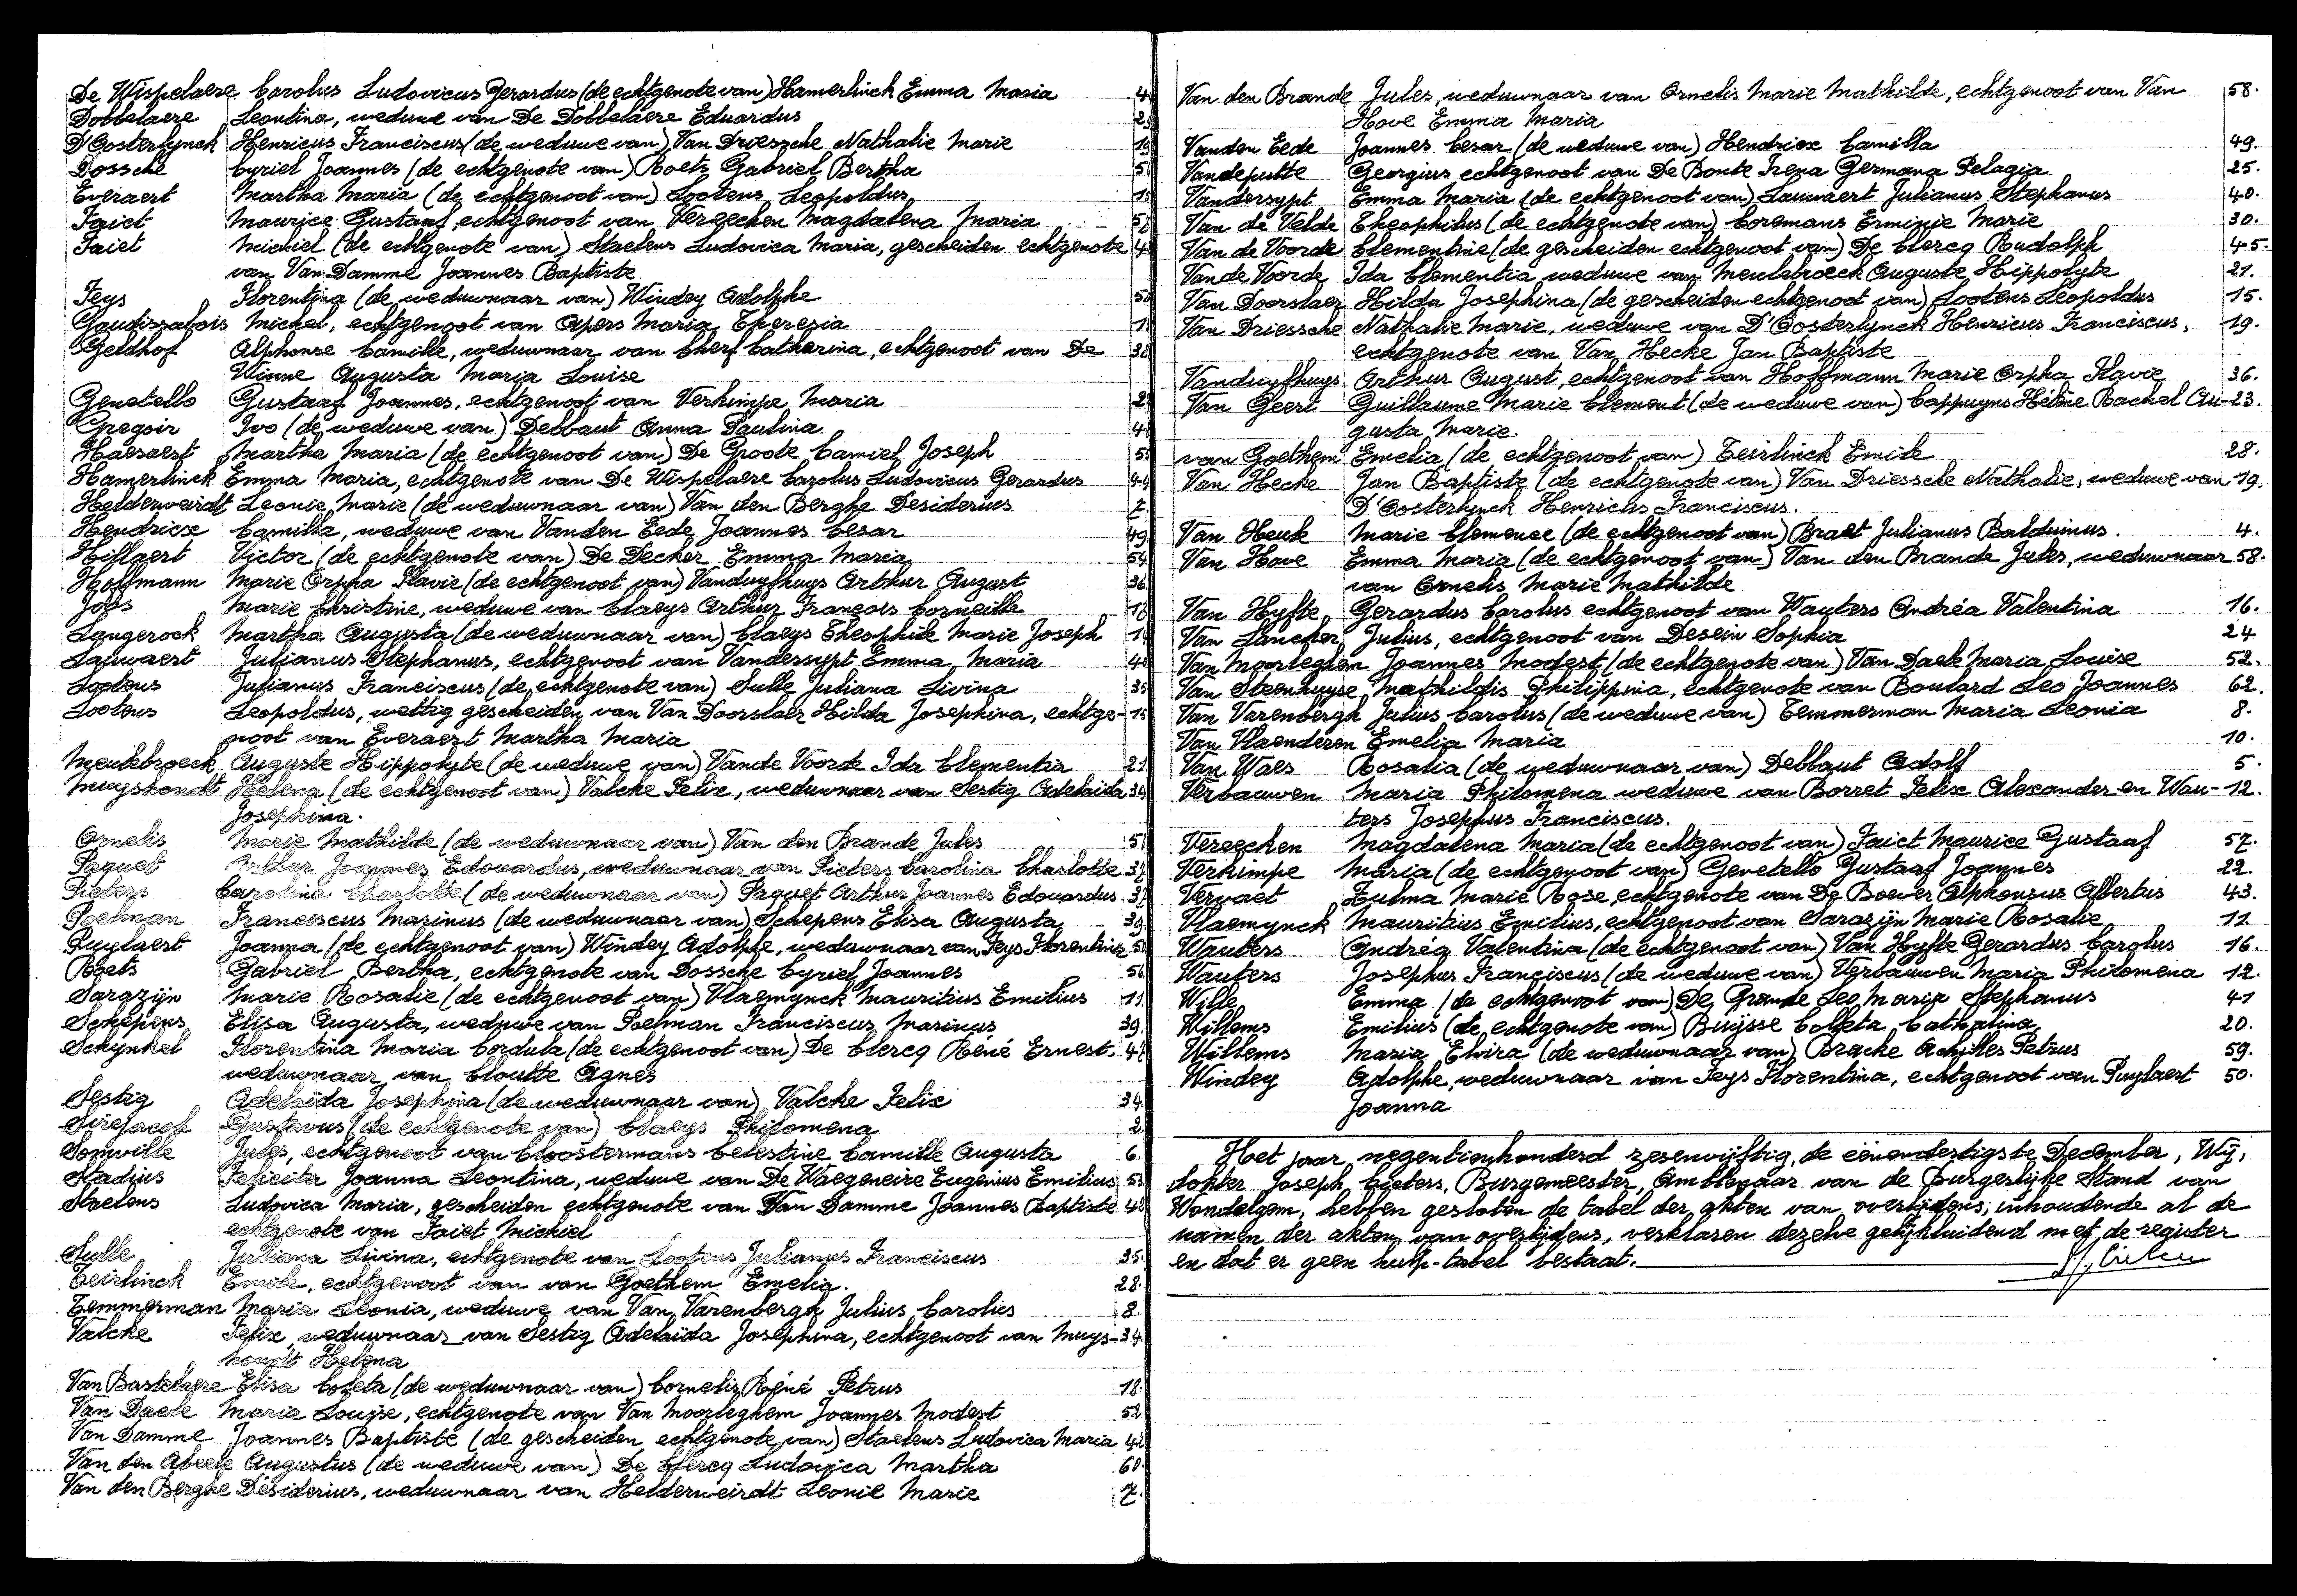 De Wispelaere Carolus Ludovicus Gerardus (de echtgenote van) Hamerlinck Emma Maria 4
Dobbelaere Leontina, weduwe van De Dobbelaere Eduardus 2
D'Oosterlynck Henricus Franciscus (de weduwe van) Van Driessche Nathalie Marie 19
Dossche Cyriel Joannes (de echtgenote van) Roets Gabriel Bertha 5
Everaert Martha Maria (de echtgenoot van) Lootens Leopoldus 15
Faict Maurice Gustaaf, echtgenoot van Vereecken Magdalena Maria 57
Faict Michiel (de echtgenote van) Staelens Ludovica Maria, gescheiden echtgenote 48
van Van Damme Joannes Baptiste
Feys Florentina (de weduwnaar van) Windey Adolphe 50
Gaudissabois Michel, echtgenoot van Apers Maria Theresia 1
Geldhof Alphonse Camille, weduwnaar van Cherf Catharina, echtgenoot van De 38
Winne Augusta Maria Louise
Genetello Gustaaf Joannes, echtgenoot van Verkimpe Maria 2
Gregoir Ivo (de weduwe van) Debbaut Anna Paulina 4
Haesaert Martha Maria (de echtgenoot van) De Groote Camiel Joseph 5
Hamerlinck Emma Maria, echtgenote van De Wispelaere Carolus Ludovicus Gerardus 44
Helderweirdt Leonie Marie (de weduwnaar van) Van den Berghe Desiderius 7.
Hendricx Camilla, weduwe van Vanden Eede Joannes Cesar 49
Hiflaert Victor (de echtgenote van) De Decker Emma Maria 54
Hoffmann Marie Orpha Flavie (de echtgenoot van) Vanduyfhuys Arthur August 36
Jods Marie Christine, weduwe van Claeys Arthur François Corneille 1
Langerock Martha Augusta (de weduwnaar van) Claeys Theophile Marie Joseph 14
Lauwaert Julianus Stephanus, echtgenoot van Vandersypt Emma Maria 40
Lootens Julianus Franciscus (de echtgenote van) Sulle Juliana Livina 35
Lootens Leopoldus, wettig gescheiden van Van Doorslaer Hilda Josephina, echtge- 15
noot van Everaert Martha Maria
Meulebroeck Auguste Hippolyte (de weduwe van) Vande Voorde Ida Clementia 21
Muyshondt Helena (de echtgenoot van) Valcke Felix, weduwnaar van Sestig Adelaida 34
Josephina.
Ornelis Marie Mathilde (de weduwnaar van) Van den Brande Jules 5
Paquet Arthur Joannes Edouardus, weduwnaar van Pieters Carolina Charlotte 37
Pieters Carolina Charlotte (de weduwnaar van) Paquet Arthur Joannes Edouardus. 37
Poelman Franciscus Marinus (de weduwnaar van) Schepens Elisa Augusta 39
Puylaert Joanna (de echtgenoot van) Windey Adolphe, weduwnaar van Feys Florentina 50
Roets Gabriel Bertha, echtgenote van Dossche Cyriel Joannes 56
Sarazijn Marie Rosalie (de echtgenoot van) Vlaemynck Mauritius Emilius 11
Schepens Elisa Augusta, weduwe van Poelman Franciscus Marinus 39
Schynkel Florentina Maria Cordula (de echtgenoot van) De Clercq René Ernest, 47
weduwnaar van Cloutte Agnes
Sestig Adelaïda Josephina (de weduwnaar van) Valcke Felix 34
Sirejacob Gustavus (de echtgenote van) Claeys Philomena 2
Somville Jules, echtgenoot van Cloostermans Celestine Camille Augusta 6.
Stadius Felicita Joanna Leontina, weduwe van De Waegeneire Eugenius Emilius 53
Staelens Ludovica Maria, gescheiden echtgenote van Van Damme Joannes Baptiste 48
echtgenote van Faict Michiel
Sulle Juliana Livina, echtgenote van Lootens Julianus Franciscus 35
Teirlinck Emile, echtgenoot van van Goethem Emelia. 28.
Temmerman Maria Leonia, weduwe van Van Varenbergh Julius Carolus 8.
Valcke Felix, weduwnaar van Sestig Adelaïda Josephina, echtgenoot van Muys- 34
hondt Helena
Van Bastelaere Elisa Coleta (de weduwnaar van) Cornelis René Petrus 18
Van Daele Maria Louise, echtgenote van Van Moorleghem Joannes Modest 52
Van Damme Joannes Baptiste (de gescheiden echtgenote van) Staelens Ludovica Maria 48
Van den Abeele Augustus (de weduwe van) De Clercq Ludovica Martha 60
Van den Berghe Desiderius, weduwnaar van Helderweirdt Leonie Marie 7.
Van den Brande Jules, weduwnaar van Ornelis Marie Mathilde, echtgenoot van Van 58.
Hove Emma Maria
Vanden Eede Joannes Cesar (de weduwe van) Hendricx Camilla 49.
Vandeputte Georgius echtgenoot van De Bonte Irena Germana Pelagia 25.
Vandersypt Emma Maria (de echtgenoot van) Lauwaert Julianus Stephanus 40.
Van de Velde Theophilus (de echtgenote van) Coremans Erminie Marie 30.
Van de Voorde Clementine (de gescheiden echtgenoot van) De Clercq Rudolph 45.
Van de Voorde Ida Clementia weduwe van Meulebroeck Auguste Hippolyte 21.
Van Doorslaer Hilda Josephina (de gescheiden echtgenoot van) Lootens Leopoldus 15.
Van Driessche Nathalie Marie, weduwe van D'Oosterlynck Henricus Franciscus, 19.
echtgenote van Van Hecke Jan Baptiste
Vanduyfhuys Arthur August, echtgenoot van Hoffmann Marie Orpha Flavie 36.
Van Geert Guillaume Marie Clement (de weduwe van) Cappuyns Hélène Rachel Au- 23.
gusta Marie.
van Goethem Emelia (de echtgenoot van) Teirlinck Emile 28.
Van Hecke Jan Baptiste (de echtgenote van) Van Driessche Nathalie, weduwe van 19.
D'Oosterlynck Henricus Franciscus.
Van Heule Marie Clemence (de echtgenoot van) Braet Julianus Balduinus. 4.
Van Hove Emma Maria (de echtgenoot van) Van den Brande Jules, weduwnaar 58.
van Ornelis Marie Mathilde
Van Hyfte Gerardus Carolus echtgenoot van Wauters Andréa Valentina 16.
Van Lancker Julius, echtgenoot van Desein Sophia 24
Van Moorleghem Joannes Modest (de echtgenote van) Van Daele Maria Louise 52.
Van Steenhuyse Mathildis Philippina, echtgenote van Boulard Leo Joannes 62.
Van Varenbergh Julius Carolus (de weduwe van) Temmerman Maria Leonia 8.
Van Vlaenderen Emelia Maria 10.
Van Waes Rosalia (de weduwnaar van) Debbaut Adolf 5.
Verbauwen Maria Philomena weduwe van Borret Felix Alexander en Wau- 12.
ters Josephus Franciscus.
Vereecken Magdalena Maria (de echtgenoot van) Faict Maurice Gustaaf 57.
Verkimpe Maria (de echtgenoot van) Genetello Gustaaf Joannes 22.
Vervaet Zulma Marie Rose, echtgenote van De Boever Alphonsus Albertus 43.
Vlaemynck Mauritius Emilius, echtgenoot van Sarazijn Marie Rosalie 11.
Wauters Andréa Valentina (de echtgenoot van) Van Hyfte Gerardus Carolus 16.
Wauters Josephus Franciscus (de weduwe van) Verbauwen Maria Philomena 12.
Wille Emma (de echtgenoot van) De Grande Leo Maria Stephanus 41
Willems Emilius (de echtgenote van) Buijsse Colleta Catharina 20.
Willems Maria Elvira (de weduwnaar van) Bracke Achilles Petrus 59.
Windey Adolphe, weduwnaar van Feys Florentina, echtgenoot van Puylaert 50.
Joanna
Het jaar negentienhonderd zesenvijftig, de eenendertigste December, Wij,
dokter Joseph Cieters, Burgemeester, Ambtenaar van de Burgerlijke Stand van
Wondelgem, hebben gesloten de tabel der akten van overlijdens, inhoudende al de
namen der akten van overlijdens, verklaren dezelve gelijkluidend met de register
en dat er geen hulp-tabel bestaat.